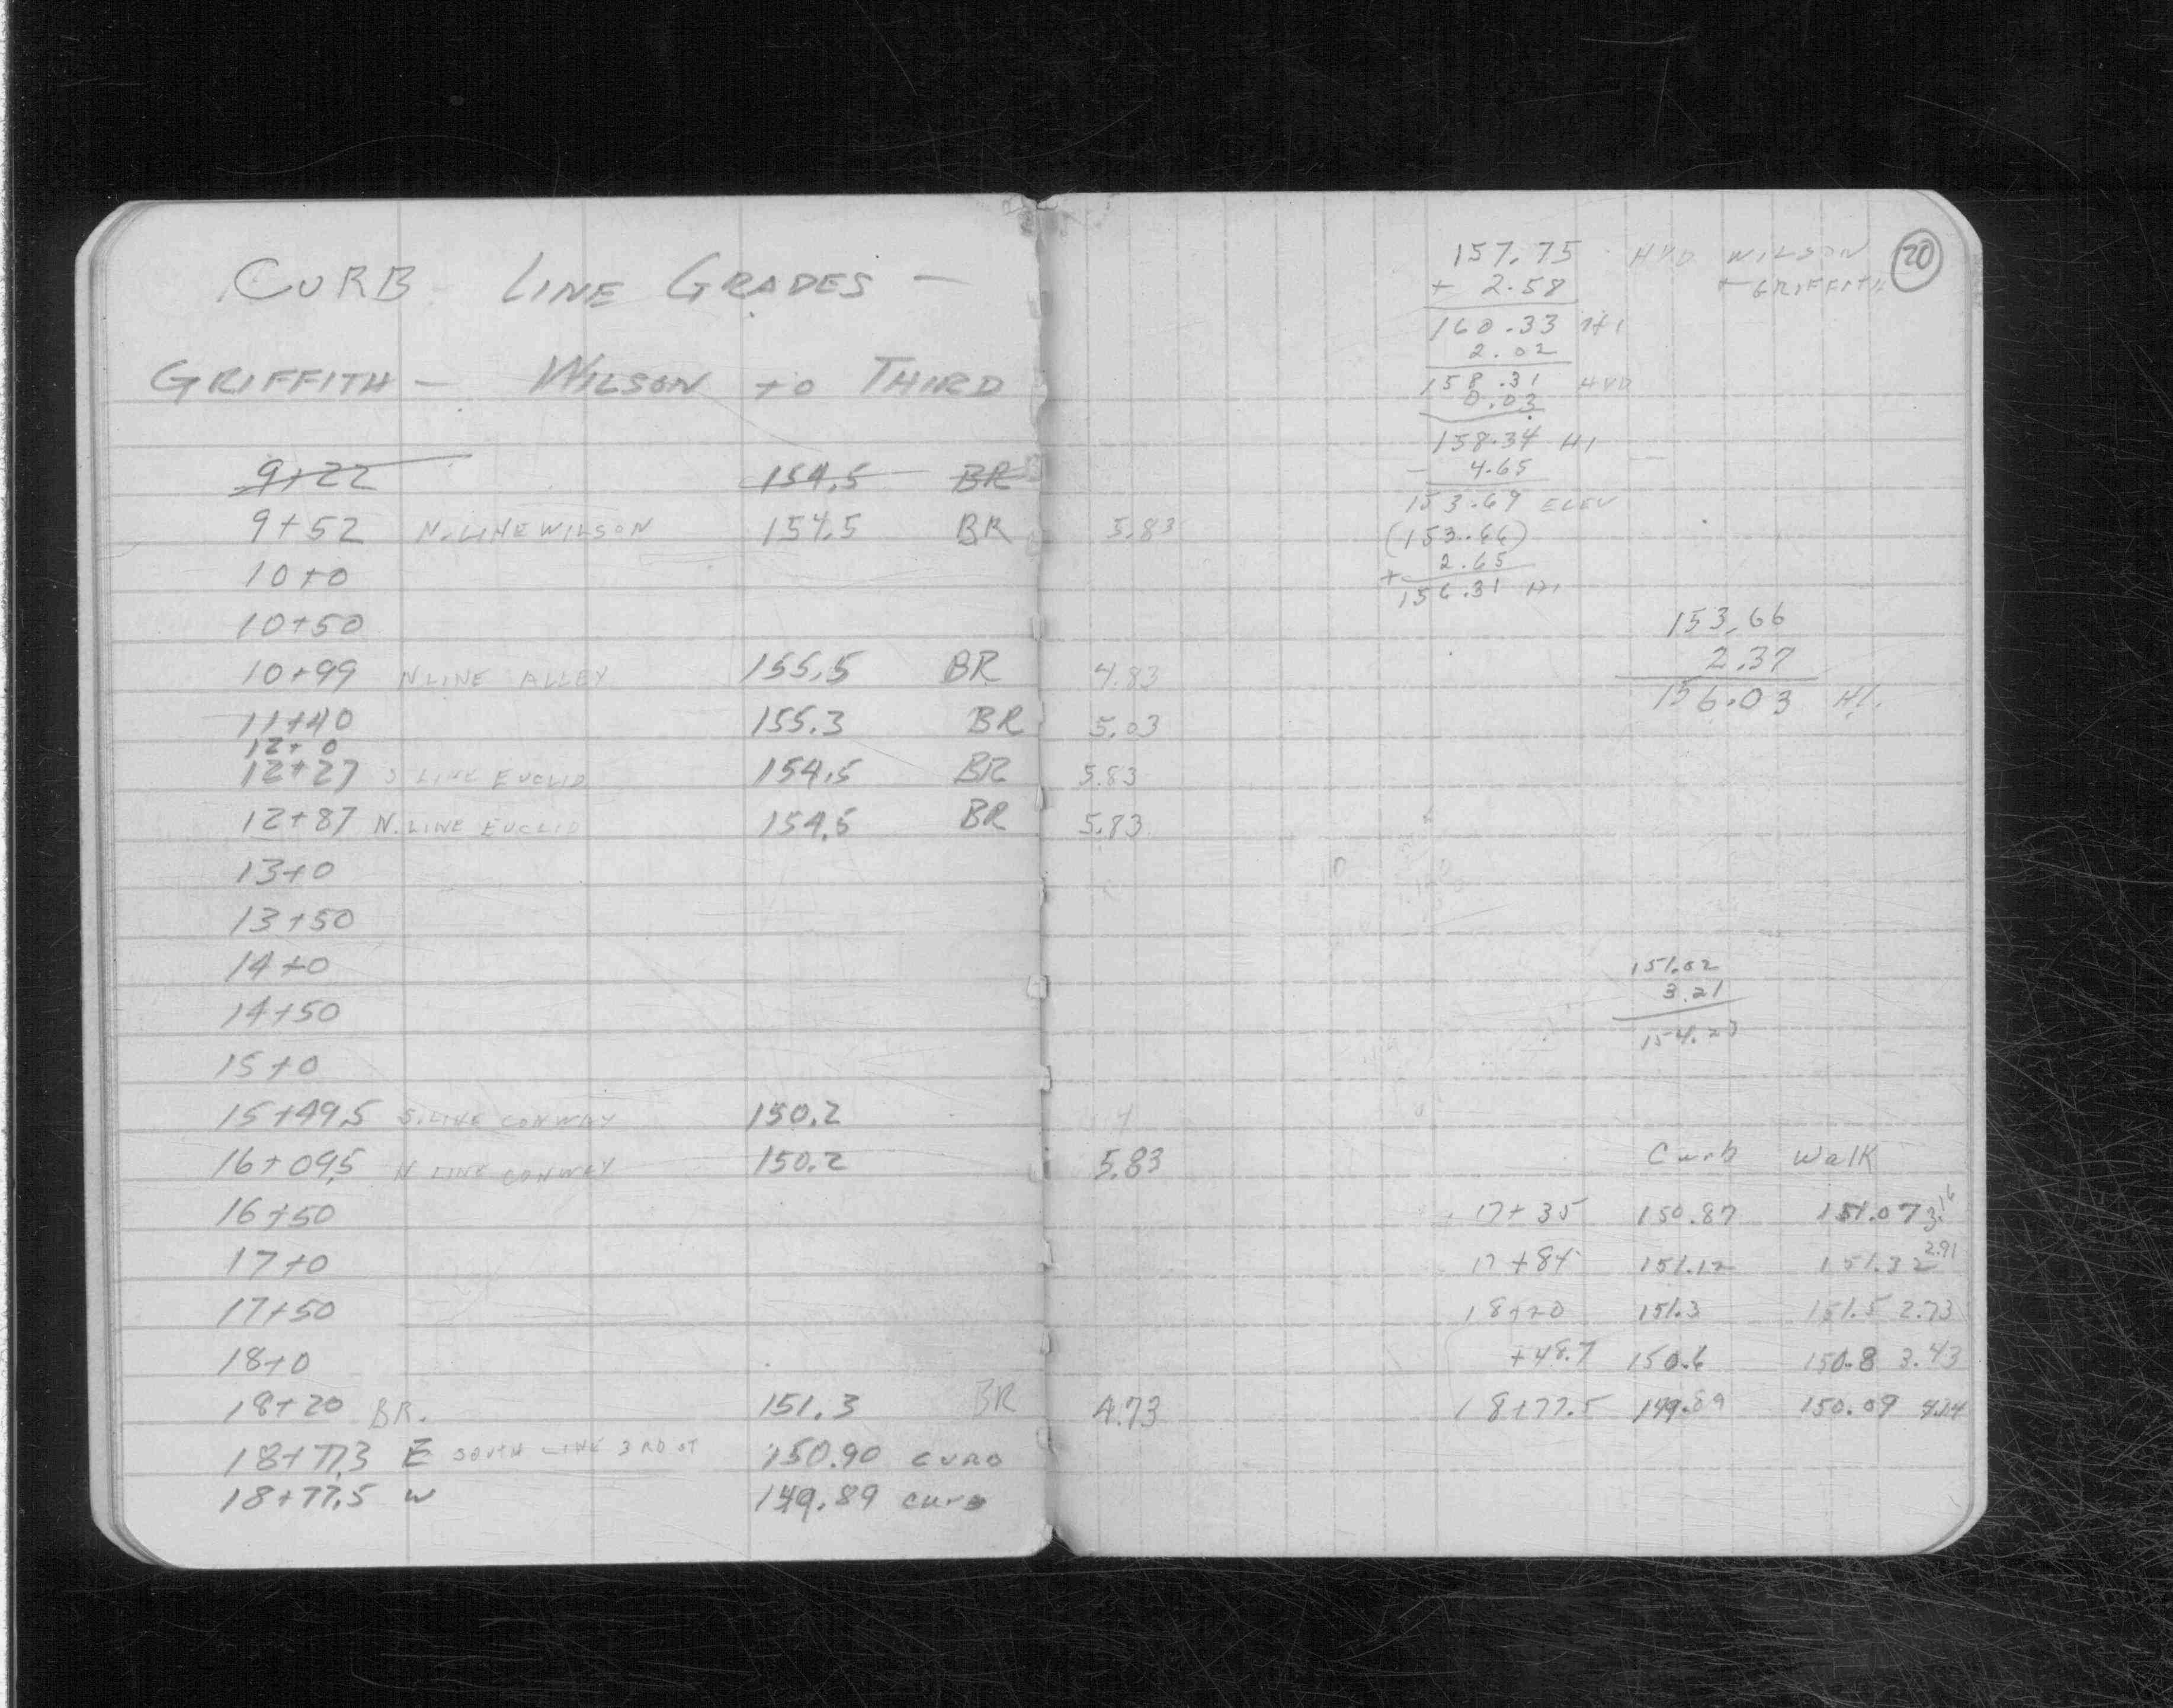 CURB LINE GRADES —
GRIFFITH — WILSON to THIRD
9+22 154.5 BR
9+52 N. LINE WILSON 154.5 BR 5.83
10+0
10+50
10+99 N. LINE ALLEY 155.5 BR 4.83
11+40 155.3 BR 5.03
12+0
12+27 S LINE EUCLID 154.5 BR 5.83
12+87 N. LINE EUCLID 154.5 BR 5.83
13+0
13+50
14+0
14+50
15+0
15+49.5 S. LINE CONWAY 150.2
16+09.5 N LINE CONWAY 150.2 5.83
16+50
17+0
17+50
18+0
18+20 BR. 151.3 BR 4.73
18+77.3 E SOUTH LINE 3RD ST 150.90 CURB
18+77.5 W 149.89 CURB
20
157.75 HYD WILSON
+ 2.58 + GRIFFITH
160.33 HI
2.02
158.31 HYD
0.03
158.34 HI
- 4.65
153.69 ELEV
(153.66)
+ 2.65
156.31 HI
153.66
2.37
156.03 HI.
151.02
3.21
154.23
Curb Walk
17+35 150.87 151.07 3.16
17+84 151.12 151.32 2.91
18+20 151.3 151.5 2.73
+48.7 150.6 150.8 3.43
18+77.5 149.89 150.09 4.14